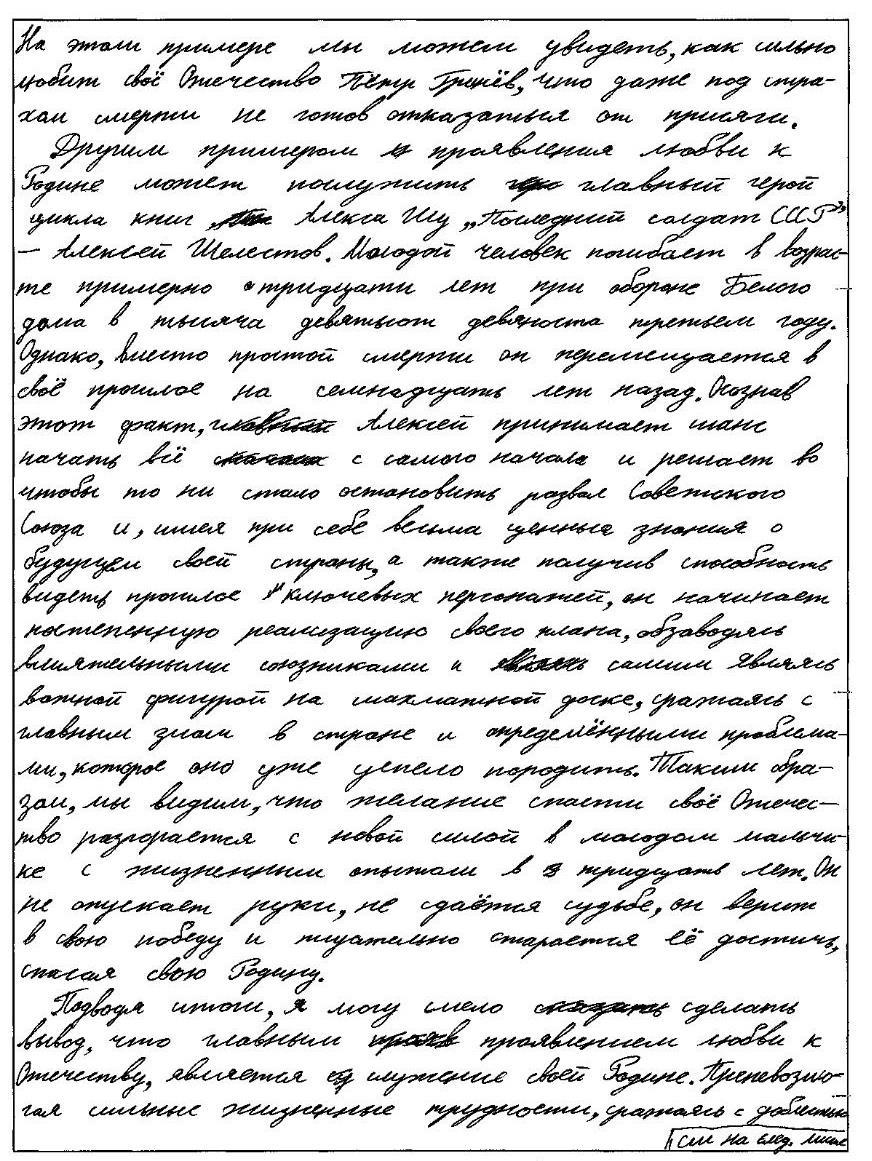 На этом примере мы можем увидеть, как сильно
любит своё Отечество Пётр Гринёв, что даже под стра-
хом смерти не готов отказаться от присяги.
Другим примером проявления любви к
Родине может послужить главный герой
цикла книг Алекса Шу „Последний солдат СССР"
– Алексей Шелестов. Молодой человек погибает в возрас-
те примерно тридцати лет при обороне Белого
дома в тысяча девятьсот девяносто третьем году.
Однако, вместо простой смерти он перемещается в
своё прошлое на семнадцать лет назад. Осознав
этот факт, Алексей принимает шанс
начать всё с самого начала и решает во
чтобы то ни стало остановить развал Советского
Союза и, имея при себе весьма ценные знания о
будущем своей страны, а также получив способность
видеть прошлое ключевых персонажей, он начинает
постепенную реализацию своего плана, обзаводясь
влиятельными союзниками и самим являясь
важной фигурой на шахматной доске, сражаясь с
главным злом в стране и определёнными проблема-
ми, которое оно уже успело породить. Таким обра-
зом, мы видим, что желание спасти своё Отечес-
тво разгорается с новой силой в молодом мальчи-
ке с жизненным опытом в тридцать лет. Он
не опускает руки, не сдаётся судьбе, он верит
в свою победу и тщательно старается её достичь,
спасая свою Родину.
Подводя итоги, я могу смело сделать
вывод, что главным проявлением любви к
Отечеству, является служение своей Родине. Превозмо-
гая сильные жизненные трудности, сражаясь с доблестью
см на след. листе